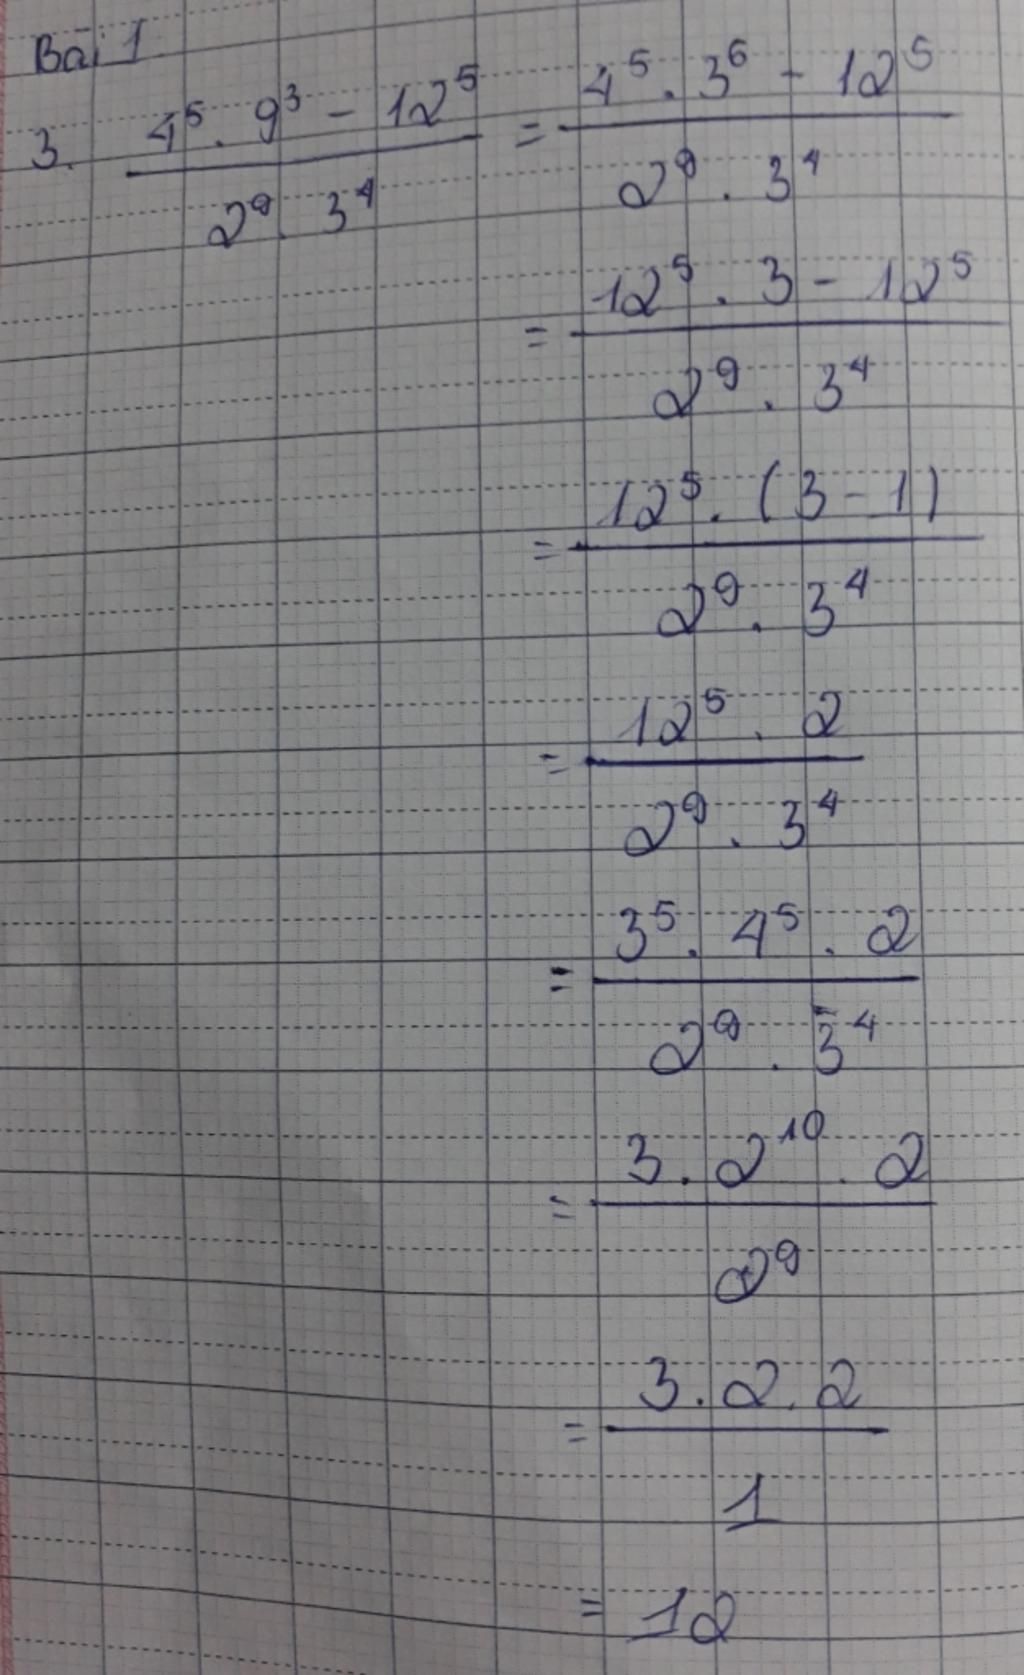 Bài 1
3. (4⁵ . 9³ - 12⁵)/(2⁹ . 3⁴) = (4⁵ . 3⁶ - 12⁵)/(2⁹ . 3⁴)
= (12⁵ . 3 - 12⁵)/(2⁹ . 3⁴)
= (12⁵ . (3 - 1))/(2⁹ . 3⁴)
= (12⁵ . 2)/(2⁹ . 3⁴)
= (3⁵ . 4⁵ . 2)/(2⁹ . 3⁴)
= (3 . 2¹⁰ . 2)/(2⁹)
= (3 . 2 . 2)/1
= 12